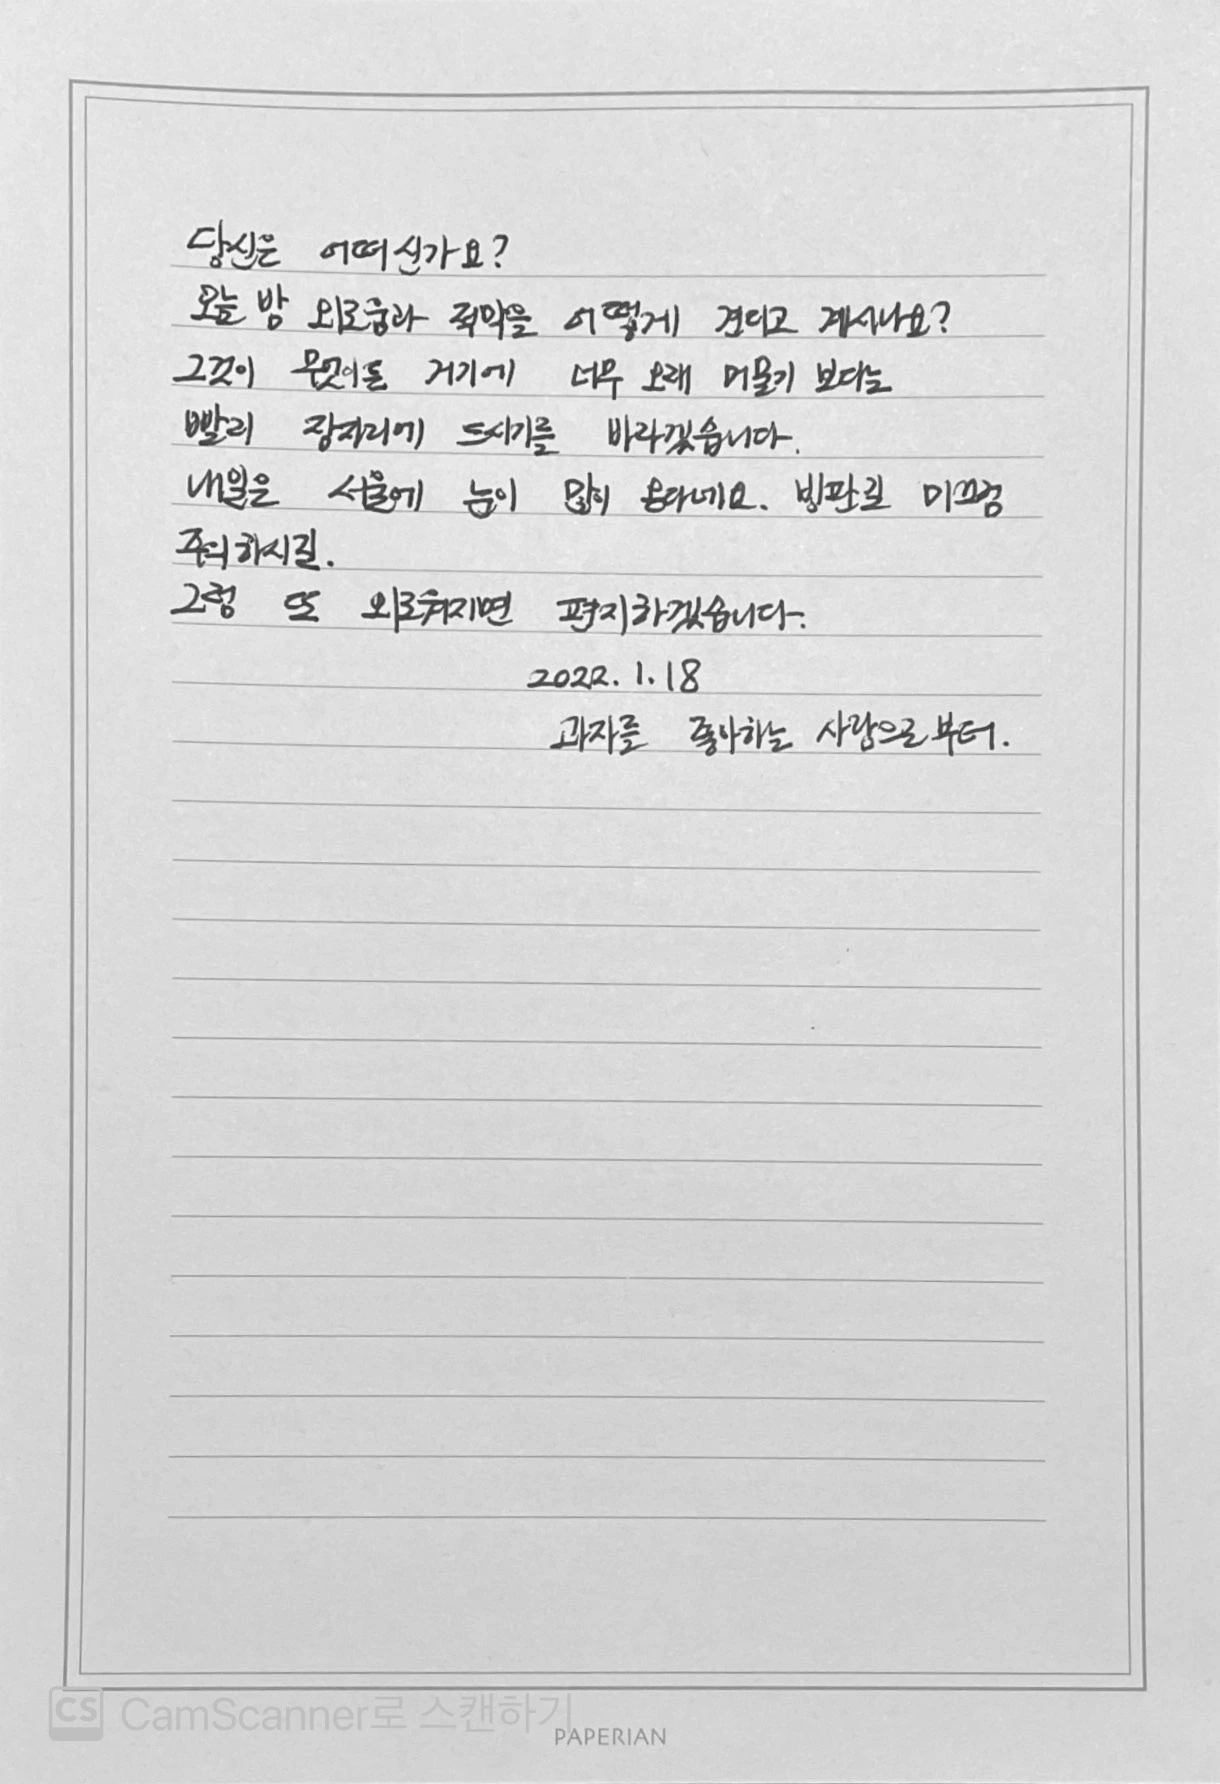 당신은 어떠신가요?
오늘 밤 외로움과 적막을 어떻게 견디고 계시나요?
그것이 무엇이든 거기에 너무 오래 머물기 보다는
빨리 잠자리에 드시기를 바라겠습니다.
내일은 서울에 눈이 많이 온다네요. 빙판길 미끄럼
주의하시길.
그럼 또 외로워지면 편지하겠습니다.
2022. 1. 18
과자를 좋아하는 사람으로부터.
CS CamScanner로 스캔하기
PAPERIAN